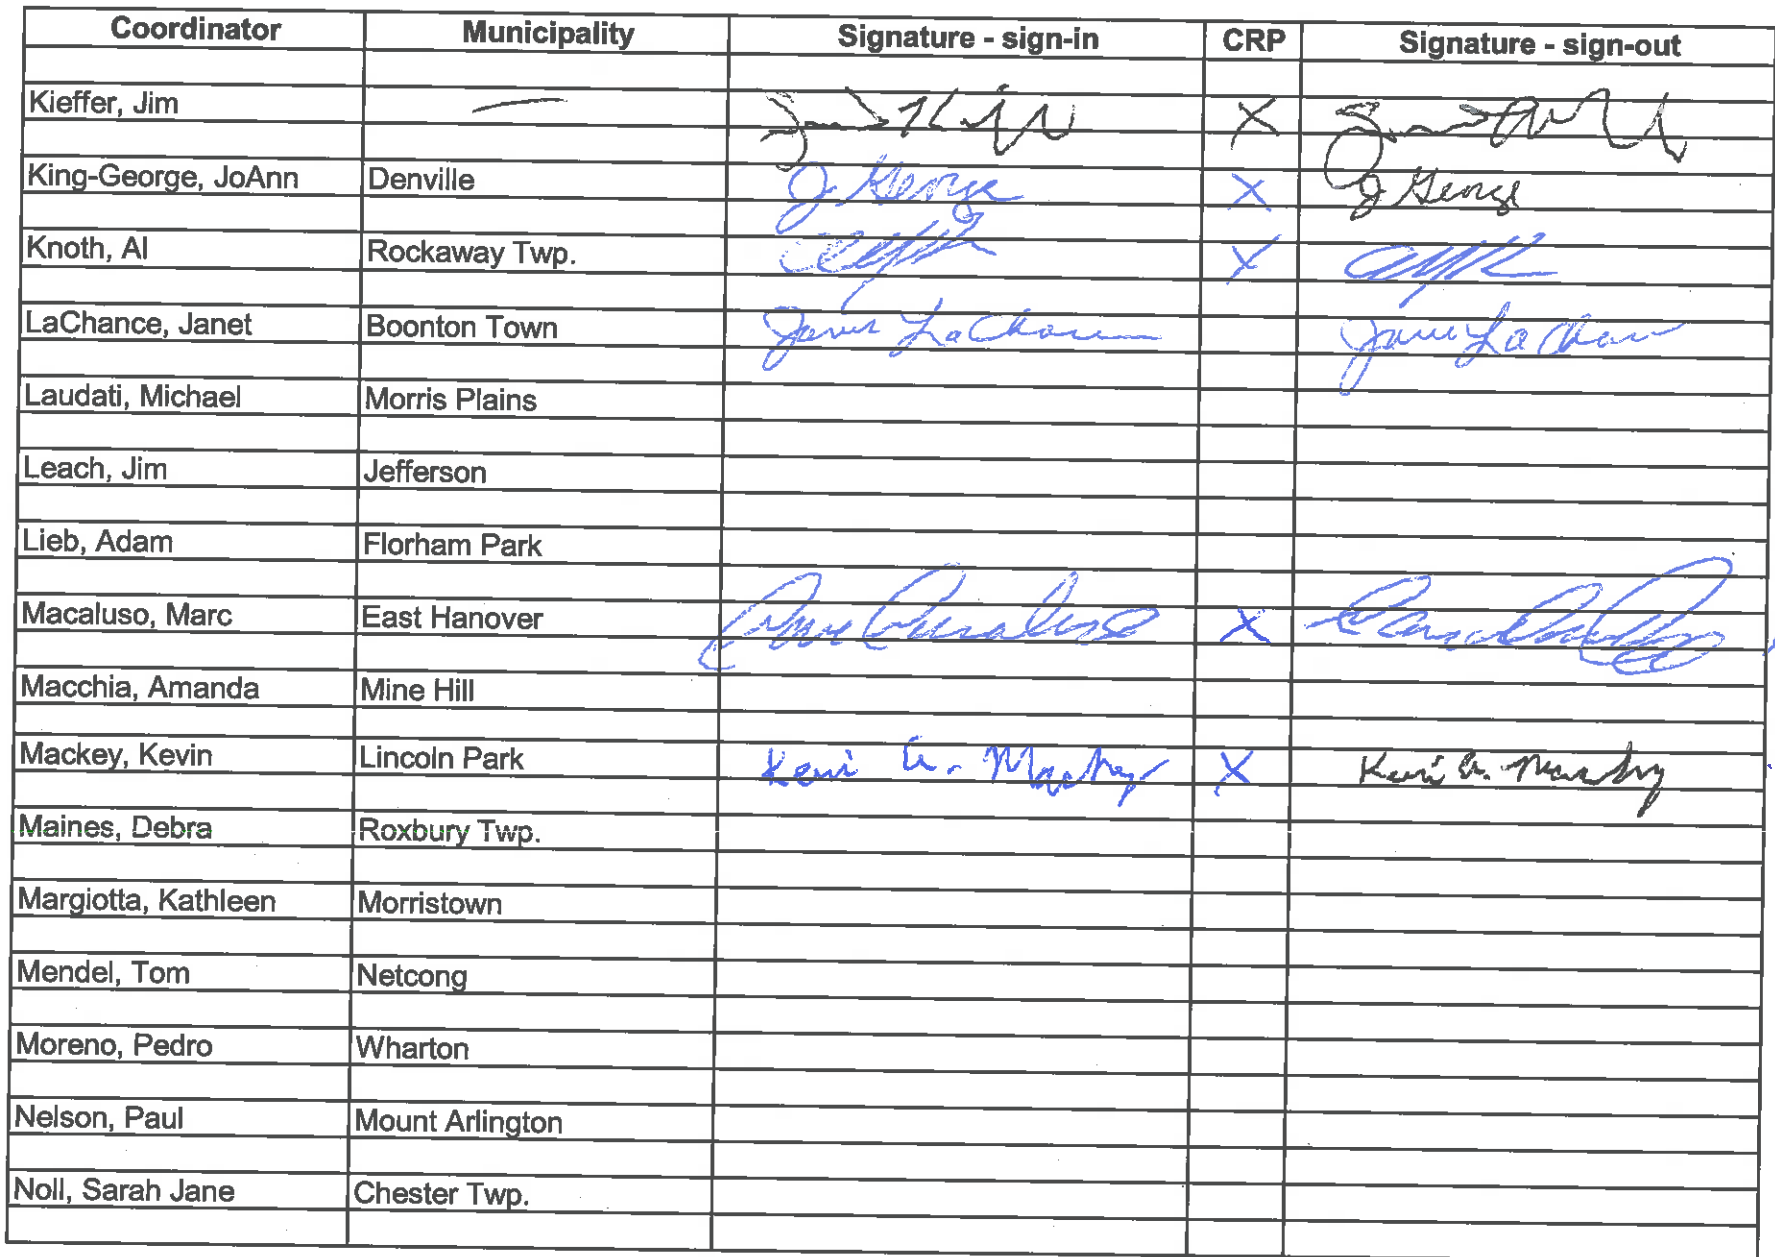 Coordinator Municipality Signature - sign-in CRP Signature - sign-out
Kieffer, Jim — X
King-George, JoAnn Denville J George X J George
Knoth, Al Rockaway Twp. X
LaChance, Janet Boonton Town Janet LaChance Janet LaChan
Laudati, Michael Morris Plains
Leach, Jim Jefferson
Lieb, Adam Florham Park
Macaluso, Marc East Hanover X
Macchia, Amanda Mine Hill
Mackey, Kevin Lincoln Park Kevin A. Mackey X Kevin A. Mackey
Maines, Debra Roxbury Twp.
Margiotta, Kathleen Morristown
Mendel, Tom Netcong
Moreno, Pedro Wharton
Nelson, Paul Mount Arlington
Noll, Sarah Jane Chester Twp.